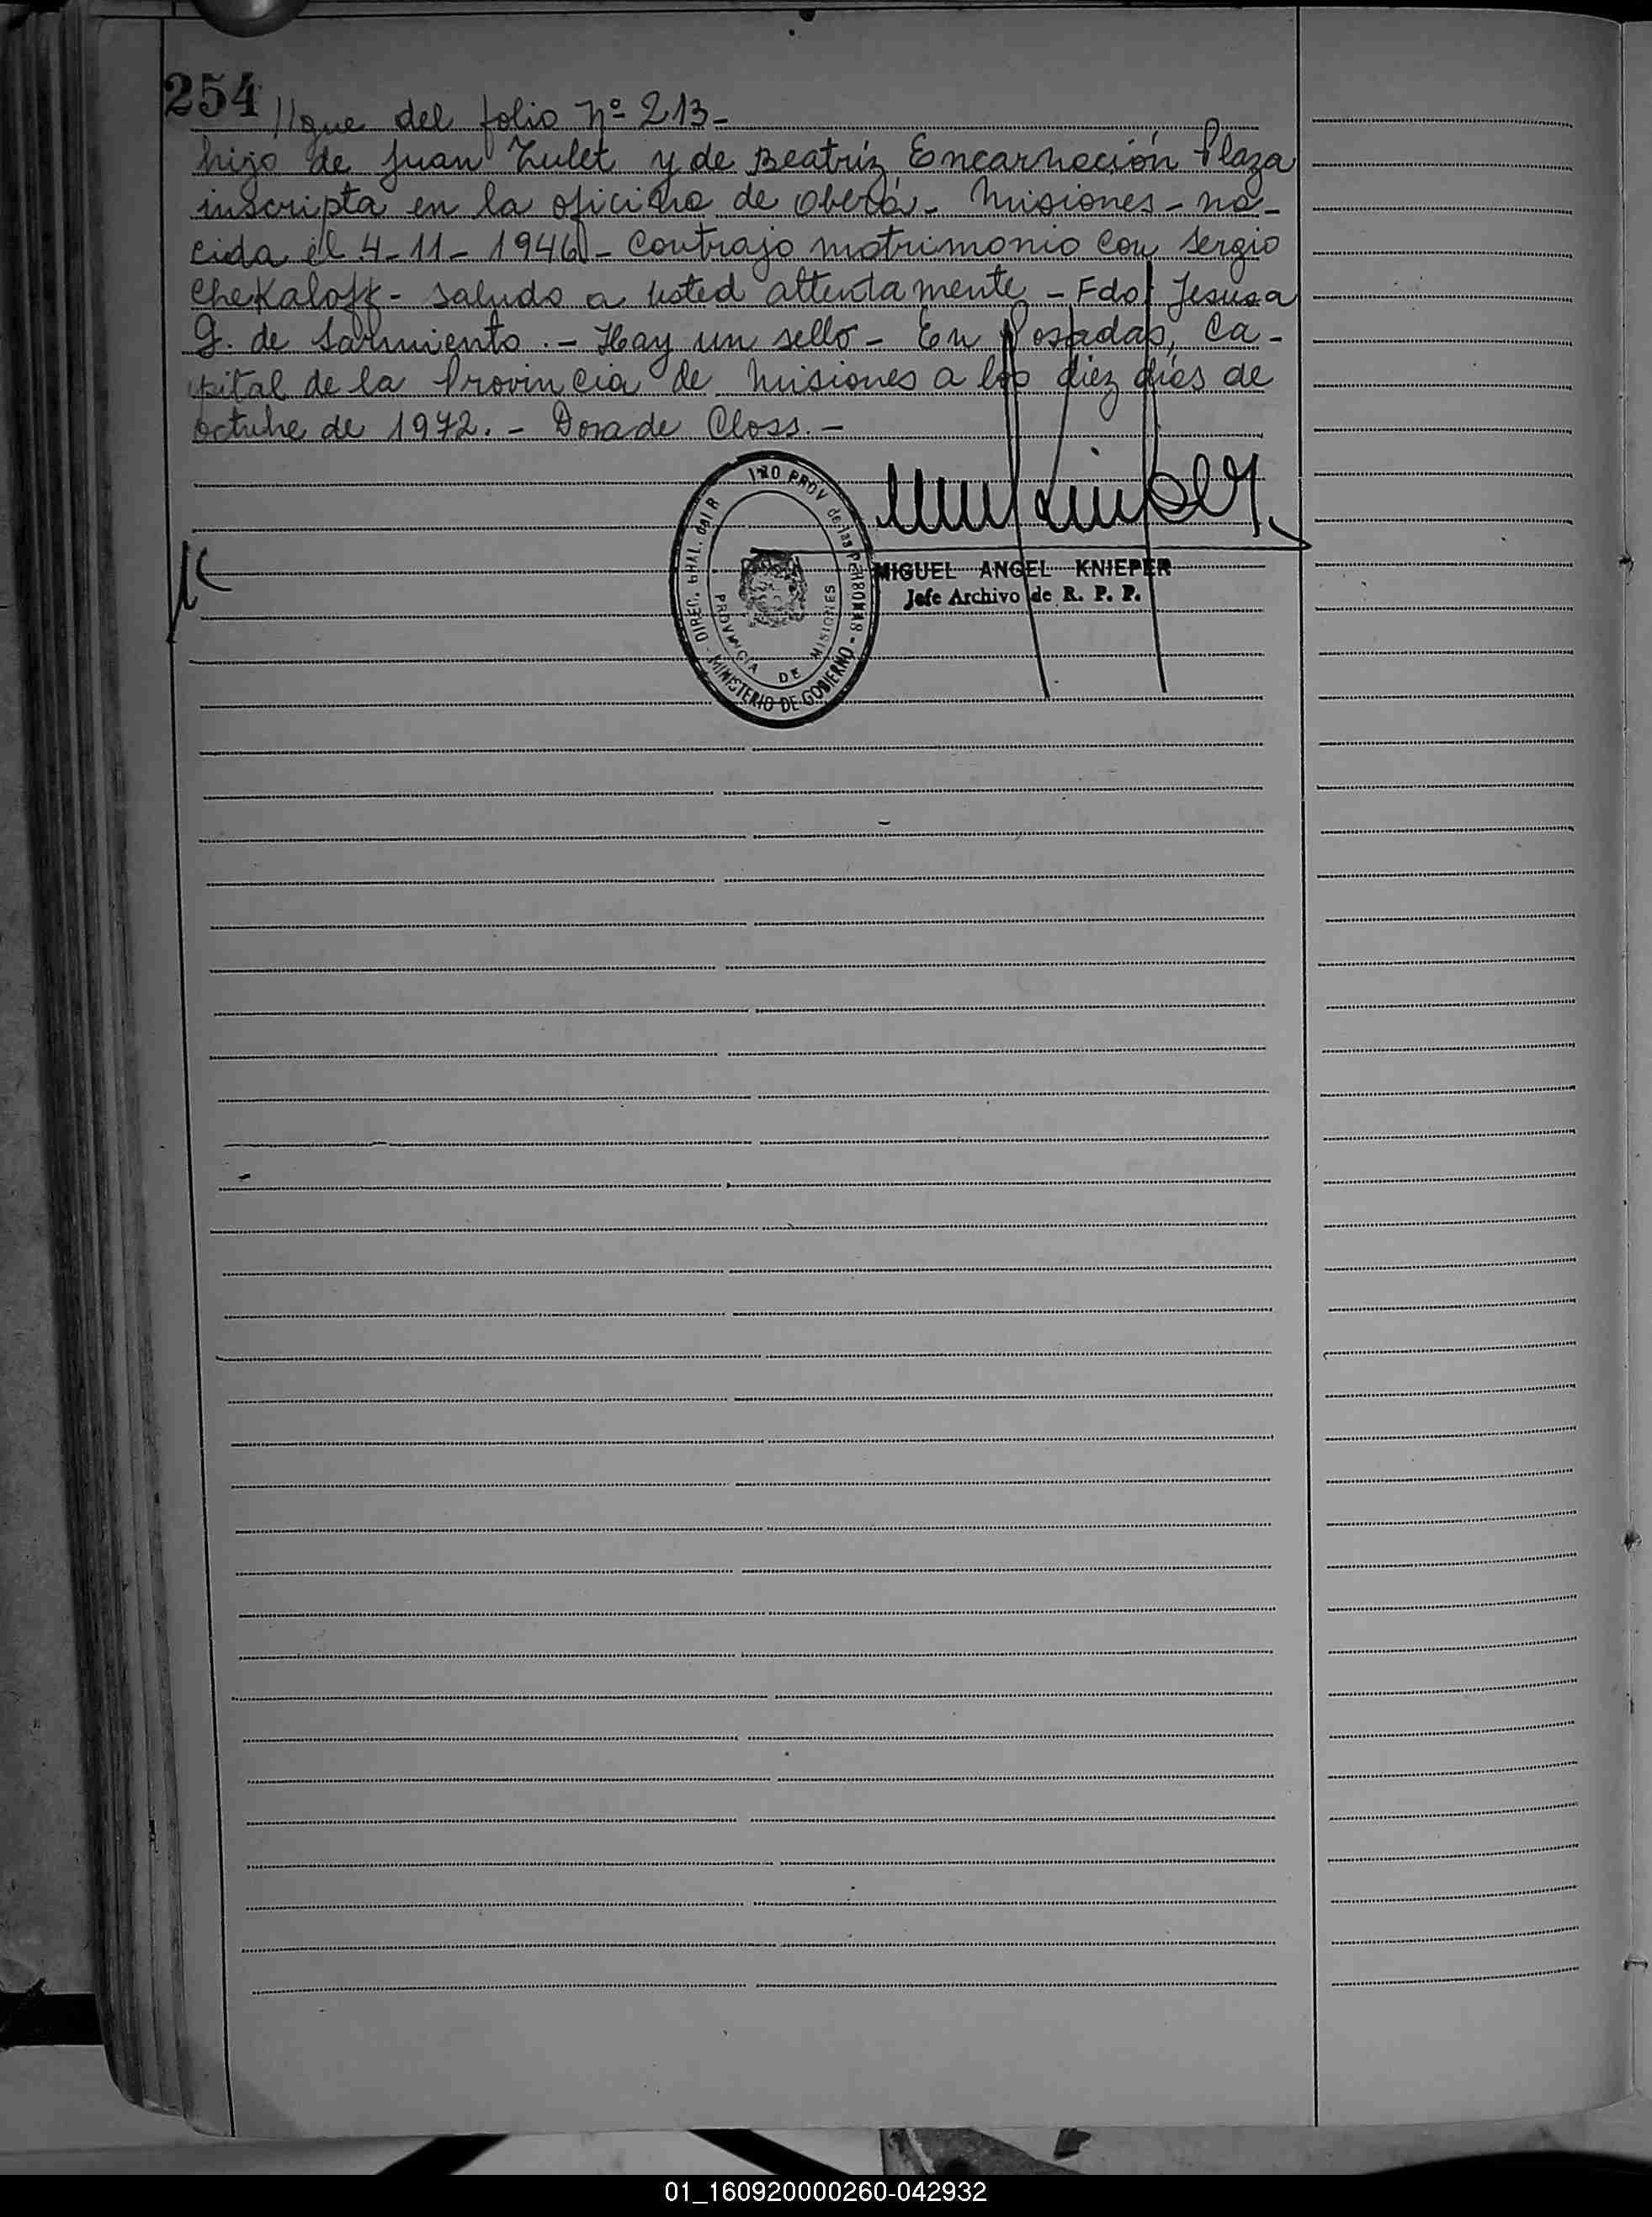 254
//gue del folio Nº 213-
hijo de Juan Zulet y de Beatríz Encarnación Plaza
inscripta en la oficina de Oberá - Misiones - na-
cida el 4-11-1946 - Contrajo matrimonio con Sergio
Chekaloff - Saludo a usted attentamente - Fdo: Jesusa
G. de Sarmiento. - Hay un sello - En Posadas, Ca-
pital de la Provincia de Misiones a los diez días de
octubre de 1972. - Dora de Closs. -
MIGUEL ANGEL KNIEPER
Jefe Archivo de R. P. P.
DIREC. GRAL. del R PROV de las Personas - MINISTERIO DE GOBIERNO -
PROVINCIA DE MISIONES
01_160920000260-042932